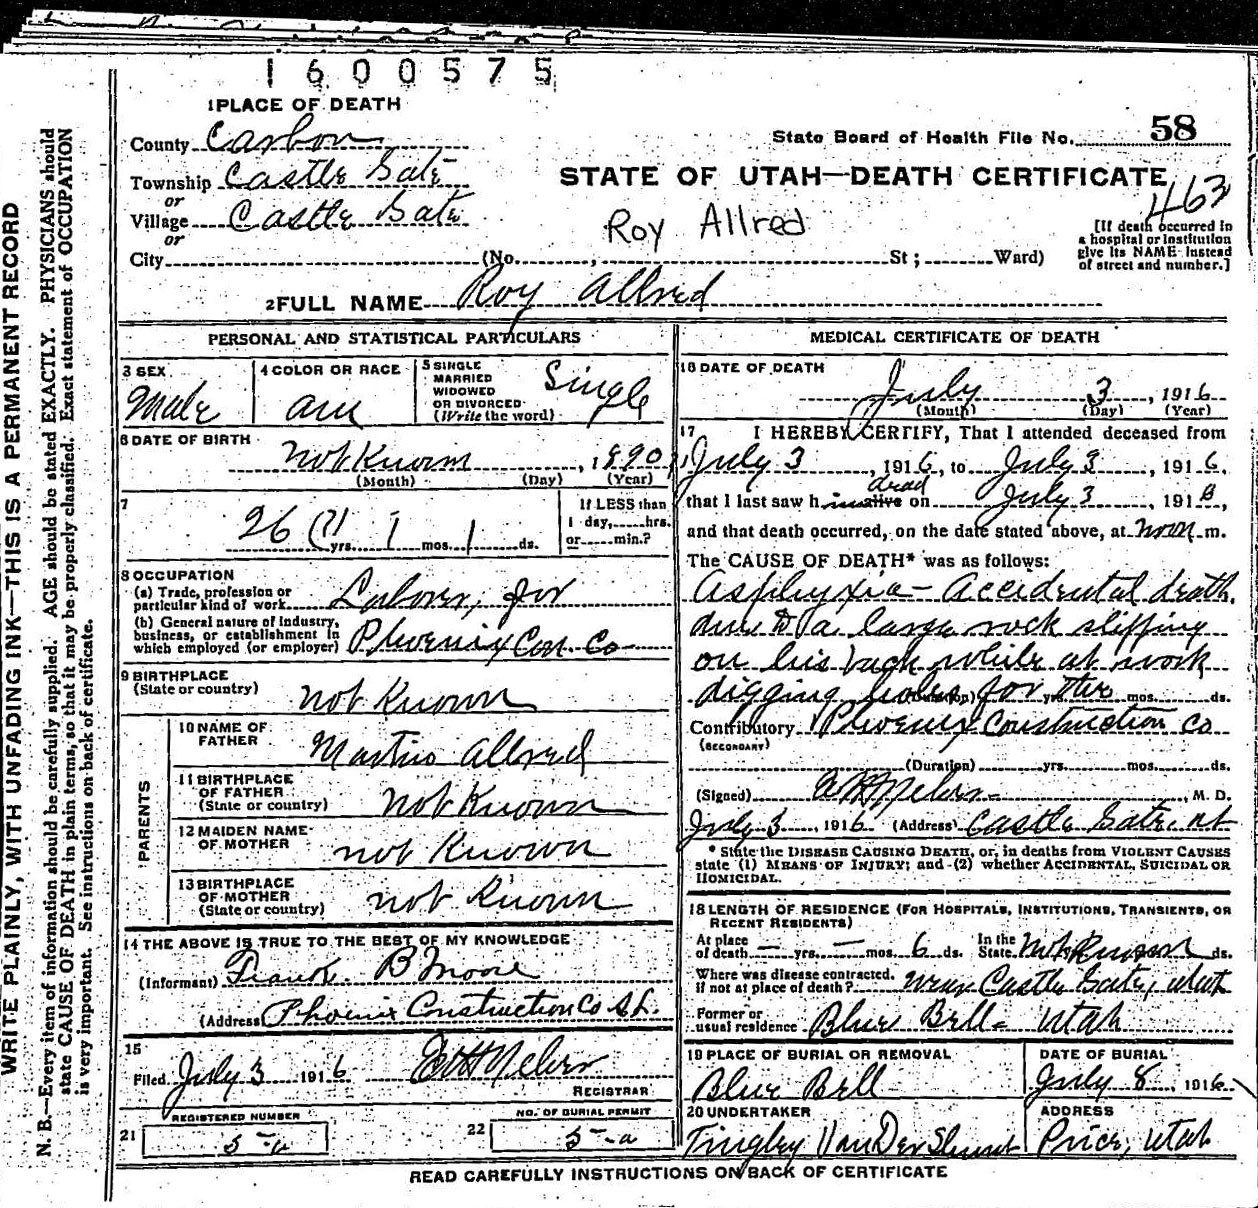 1600575
1 PLACE OF DEATH
County Carbon
State Board of Health File No. 58
Township Castle Gate
STATE OF UTAH—DEATH CERTIFICATE
463
or
Village Castle Gate
Roy Allred
[If death occurred in
a hospital or institution
give its NAME instead
of street and number.]
or
City (No. , St ; Ward)
2 FULL NAME Roy Allred
PERSONAL AND STATISTICAL PARTICULARS
3 SEX
Male
4 COLOR OR RACE
am
5 SINGLE
MARRIED
WIDOWED
OR DIVORCED
(Write the word)
Single
6 DATE OF BIRTH
not Known , 1890
(Month) (Day) (Year)
7
26 (?) yrs. 1 mos. 1 ds.
If LESS than
1 day, hrs.
or min.?
8 OCCUPATION
(a) Trade, profession or
particular kind of work Laborer, for
(b) General nature of industry,
business, or establishment in
which employed (or employer) Phoenix Con. Co
9 BIRTHPLACE
(State or country) not Known
PARENTS
10 NAME OF
FATHER Allred
11 BIRTHPLACE
OF FATHER
(State or country) not Known
12 MAIDEN NAME
OF MOTHER not Known
13 BIRTHPLACE
OF MOTHER
(State or country) not Known
14 THE ABOVE IS TRUE TO THE BEST OF MY KNOWLEDGE
(Informant) Frank B Moore
(Address) Phoenix Construction Co S.L.
15
Filed July 3 1916
REGISTRAR
REGISTERED NUMBER
21 5-a
NO. OF BURIAL PERMIT
22 5-a
MEDICAL CERTIFICATE OF DEATH
16 DATE OF DEATH
July 3 , 1916
(Month) (Day) (Year)
17 I HEREBY CERTIFY, That I attended deceased from
July 3 , 1916, to July 3 , 1916.
dead
that I last saw h im alive on July 3 , 1916,
and that death occurred, on the date stated above, at noon m.
The CAUSE OF DEATH* was as follows:
Asphyxia — Accidental death,
due to a large rock slipping
on his back while at work
digging holes for the
(Duration) yrs. mos. ds.
Contributory Phoenix Construction Co
(SECONDARY)
(Duration) yrs. mos. ds.
(Signed) , M. D.
July 3 , 1916 (Address) Castle Gate, Ut
* State the DISEASE CAUSING DEATH, or, in deaths from VIOLENT CAUSES
state (1) MEANS OF INJURY; and (2) whether ACCIDENTAL, SUICIDAL OR
HOMICIDAL.
18 LENGTH OF RESIDENCE (FOR HOSPITALS, INSTITUTIONS, TRANSIENTS, OR
RECENT RESIDENTS)
At place
of death — yrs. — mos. 6 ds. In the
State Not Known ds.
Where was disease contracted,
if not at place of death? near Castle Gate, Utah
Former or
usual residence Blue Bell - Utah
19 PLACE OF BURIAL OR REMOVAL
Blue Bell
DATE OF BURIAL
July 8 , 1916
20 UNDERTAKER
Tingley
ADDRESS
Price, Utah
READ CAREFULLY INSTRUCTIONS ON BACK OF CERTIFICATE
WRITE PLAINLY, WITH UNFADING INK—THIS IS A PERMANENT RECORD
N. B.—Every item of information should be carefully supplied. AGE should be stated EXACTLY. PHYSICIANS should
state CAUSE OF DEATH in plain terms, so that it may be properly classified. Exact statement of OCCUPATION
is very important. See instructions on back of certificate.